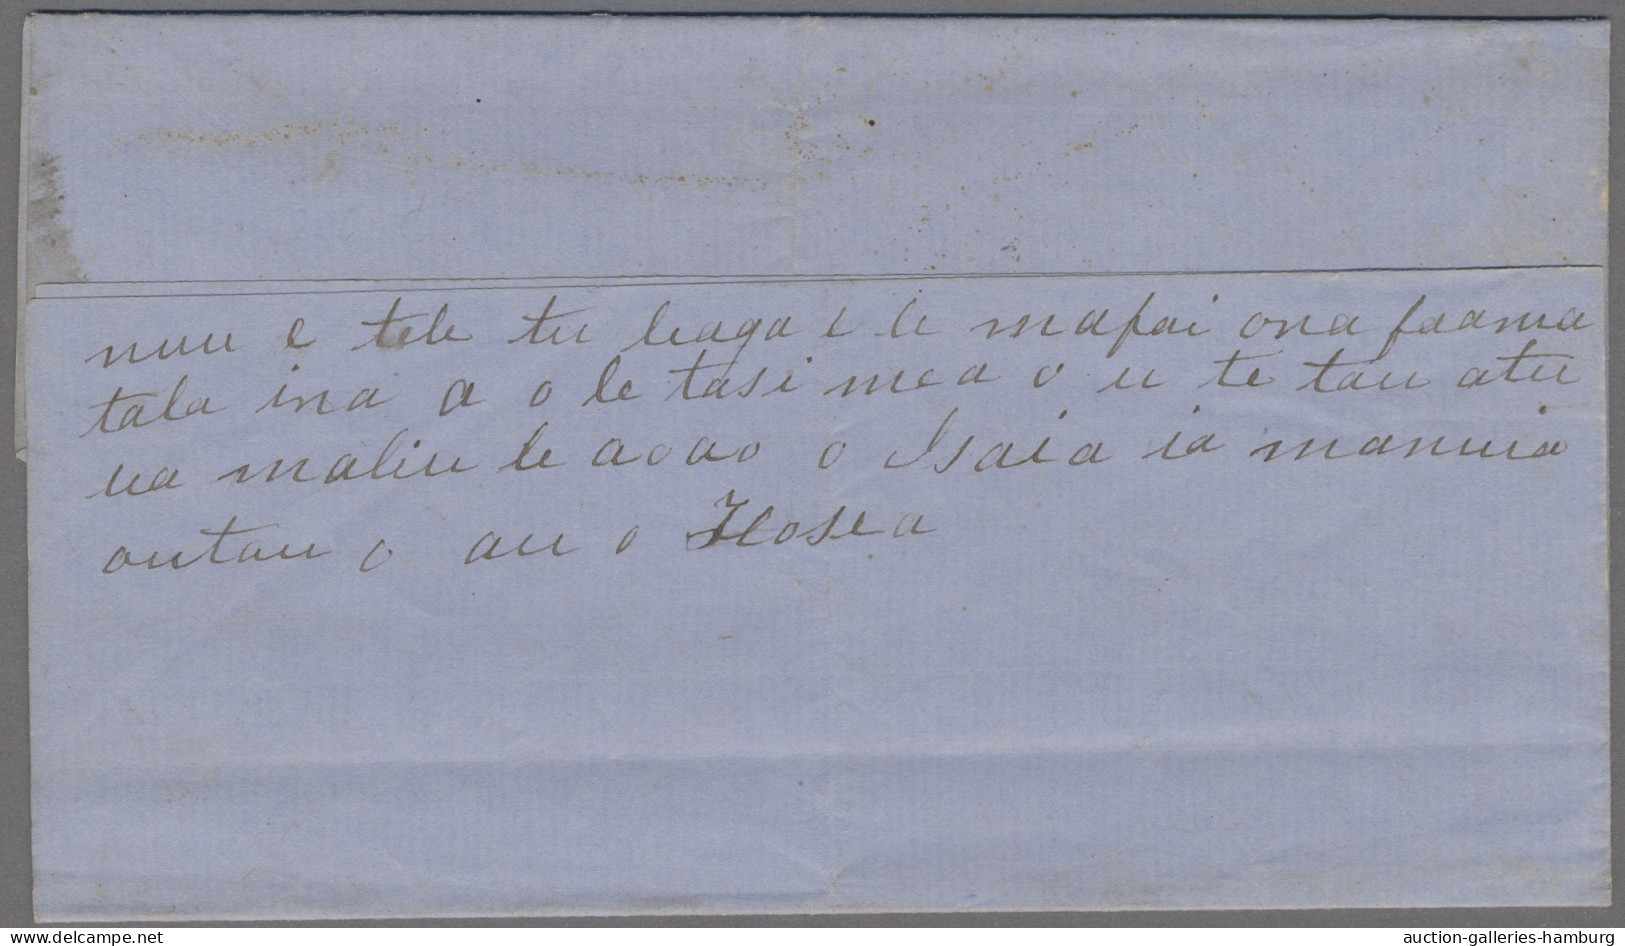 nuu e tele tu leaga e le mafai ona faama
tala ina a o le tasi mea o u te tau atu
ua maliu le aoao o Isaia ia manuia
outou o au o Hosea
delcampe.net
auction-galleries-hamburg